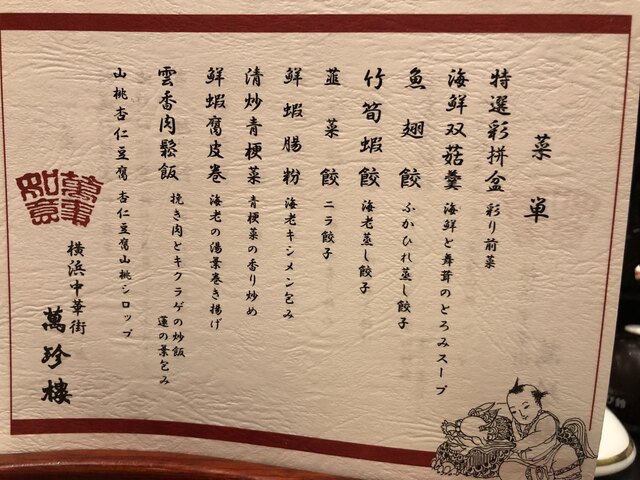 菜単
特選彩拼盆 彩り前菜
海鮮双菇羹 海鮮と舞茸のとろみスープ
魚翅餃 ふかひれ蒸し餃子
竹筍蝦餃 海老蒸し餃子
韮菜餃 ニラ餃子
鮮蝦腸粉 海老キシメン包み
清炒青梗菜 青梗菜の香り炒め
鮮蝦腐皮巻 海老の湯葉巻き揚げ
雲香肉鬆飯 挽き肉とキクラゲの炒飯
蓮の葉包み
山桃杏仁豆腐 杏仁豆腐山桃シロップ
萬事如意
横浜中華街
萬珍樓